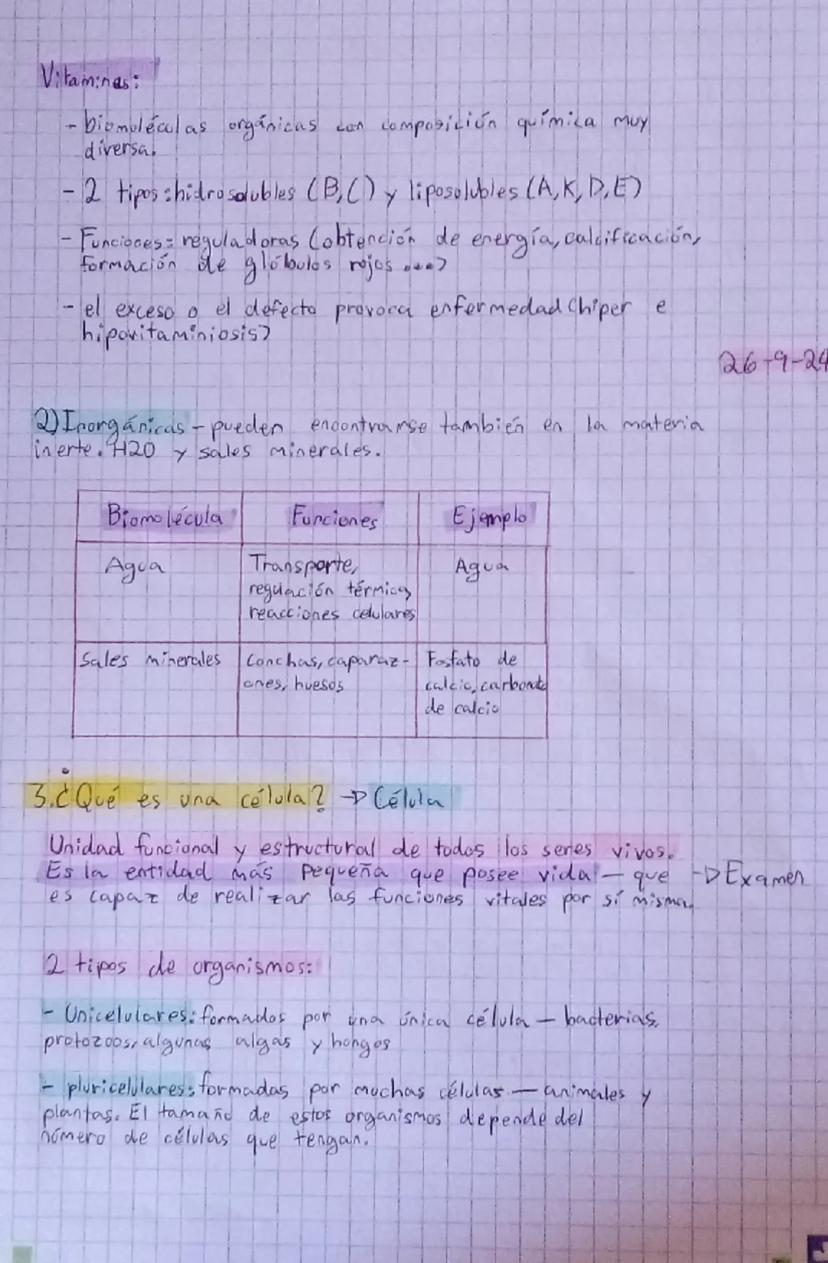 Vitaminas:
- biomoléculas orgánicas con composición química muy
diversa.
- 2 tipos: hidrosolubles (B,C) y liposolubles (A,K,D,E)
- Funciones= reguladoras (obtención de energía, calcificación,
formación de glóbulos rojos ...)
- el exceso o el defecto provoca enfermedad (hiper e
hipovitaminiosis)
26-9-24
2) Inorgánicas - pueden encontrarse también en la materia
inerte. H2O y sales minerales.
Biomolécula Funciones Ejemplo
Agua Transporte, Agua
regulación térmica,
reacciones celulares
Sales minerales Conchas, caparaz- Fosfato de
ones, huesos calcio, carbonato
de calcio
3. ¿Qué es una célula? → Célula
Unidad funcional y estructural de todos los seres vivos.
Es la entidad más pequeña que posee vida - que → Examen
es capaz de realizar las funciones vitales por sí misma.
2 tipos de organismos:
- Unicelulares: formados por una única célula - bacterias,
protozoos, algunas algas y hongos
- pluricelulares: formadas por muchas células - animales y
plantas. El tamaño de estos organismos depende del
número de células que tengan.